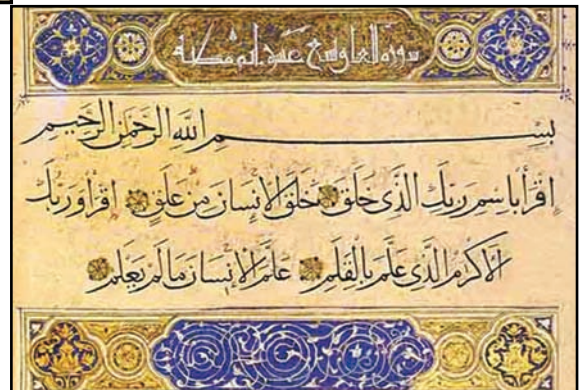 سورة العلق مكية
بِسْمِ اللهِ الرَّحْمٰنِ الرَّحِيمِ
اِقْرَأْ بِاسْمِ رَبِّكَ الَّذِى خَلَقَ خَلَقَ الْاِنْسَانَ مِنْ عَلَقٍ اِقْرَأْ وَرَبُّكَ
الْاَكْرَمُ الَّذِى عَلَّمَ بِالْقَلَمِ عَلَّمَ الْاِنْسَانَ مَا لَمْ يَعْلَمْ